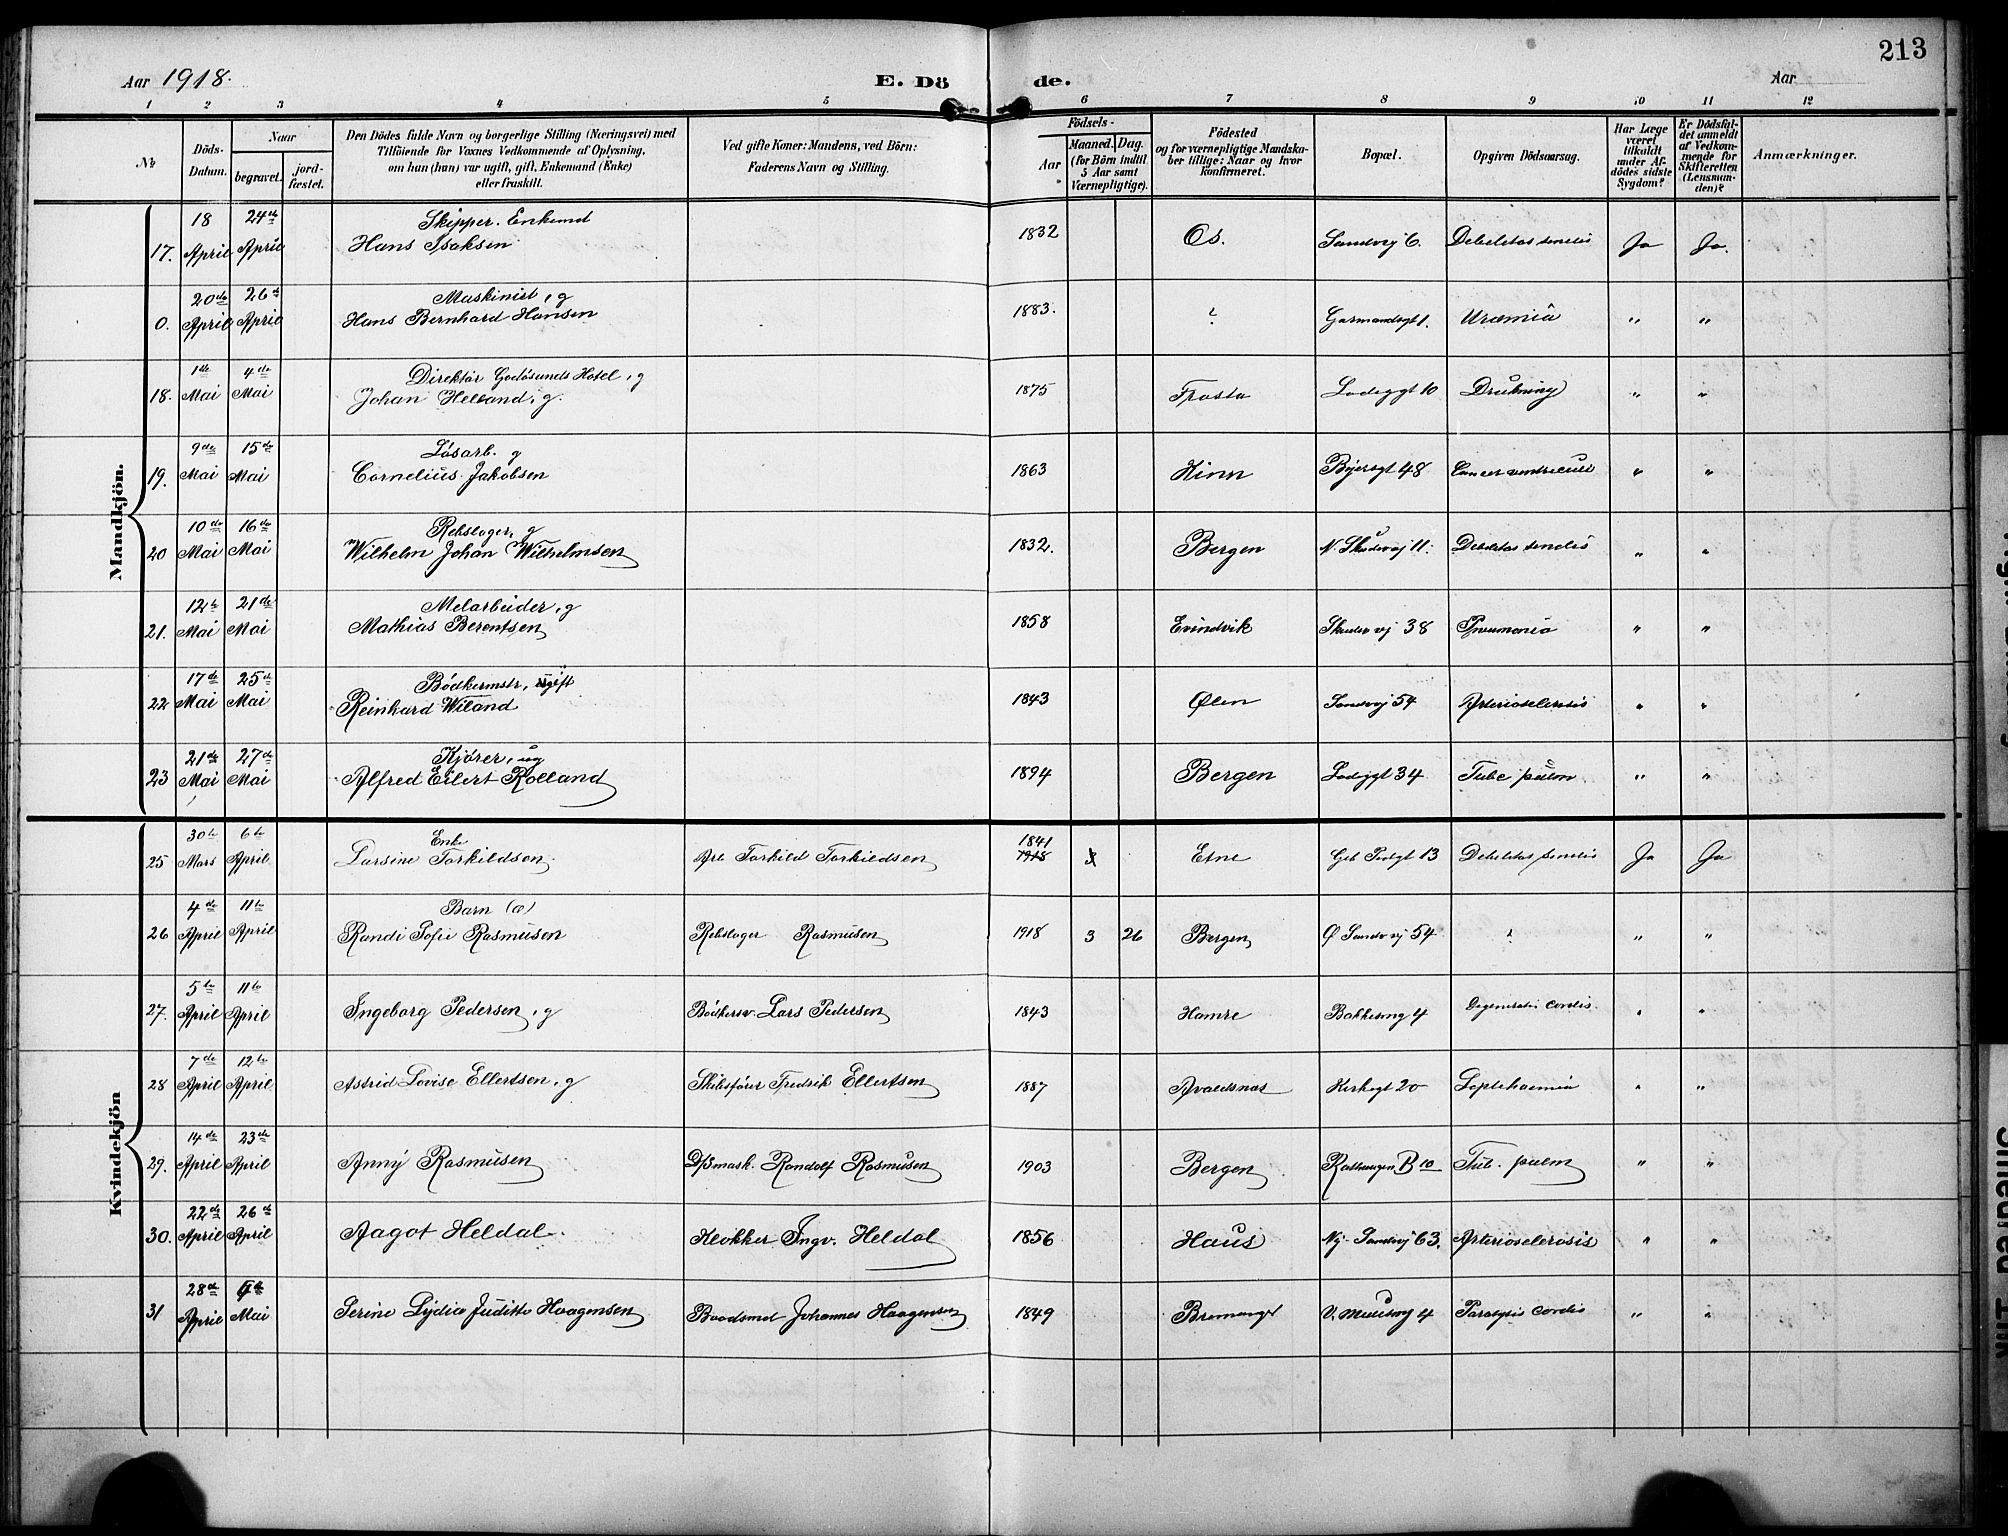 213
Aar 1918. E. Dö de. Aar
1 2 3 4 5 6 7 8 9 10 11 12
No
Döds-Datum.
Naar
begravet.
jord-fæstet.
Den Dödes fulde Navn og borgerlige Stilling (Næringsvei) med
Tilföiende for Voxnes Vedkommende af Oplysning,
om han (hun) var ugift, gift, Enkemand (Enke)
eller fraskilt.
Ved gifte Koner: Mandens, ved Börn:
Faderens Navn og Stilling.
Födsels-
Aar
Maaned. Dag.
(for Börn indtil
5 Aar samt
Værnepligtige).
Födested
og for værnepligtige Mandska-
ber tillige: Naar og hvor
konfirmeret.
Bopæl.
Opgiven Dödsaarsag.
Har Læge
været
tilkaldt
under Af-
dödes sidste
Sygdom?
Er Dödsfal-
det anmeldt
af Vedkom-
mende for
Skifteretten
(Lensman-
den)?
Anmærkninger.
Mandkjön.
17. 18 April 24de April Skipper. Enkemd Hans Isaksen 1832 Os. Sandvej 6. Debelitas senelis Ja Ja.
0. 20de April 26de April Maskinist, g Hans Bernhard Hansen 1883. ? Garmandsgt 1. Uræmia " "
18. 1ste Mai 4de Mai Direktør Godøsunds Hotel, g Johan Helland, g. 1875 Frosta Lodeggt 10 Drukning " "
19. 9de Mai 15de Mai Løsarb. g Cornelius Jakobsen 1863 Kinn 48 Cancer ventriculi " "
20 10de Mai 16de Mai Rebslager, g Wilhelm Johan Wilhelmsen 1832. Bergen N. Skudevej 11. Debelitas senelis " "
21. 12te Mai 21de Mai Melarbeider, g Mathias Berentsen 1858 Evindvik Skudevej 38 Pneumonia " "
22 17de Mai 25de Mai Bødkermstr, ugift Reinhard Wiland 1843 Ølen Sandvej 54 Arterioselerosis " "
23 21de Mai 27de Mai Kjører, ug Alfred Eilert Rolland 1894 Bergen Lodeggt 34 Tube pulm " "
Kvindekjön
25 30te Mars 6te April Enke Larsine Torkildsen Arb Torkild Torkildsen 1841 1918 Etne 13 Debelitas senelis Ja Ja
26 4de April 11te April Barn (æ) Randi Sofie Rasmusen Rebslager Rasmusen 1918 3 26 Bergen Ø Sandvej 54 ? " "
27. 5te April 11te April Ingeborg Pedersen, g Bødkersv. Lars Pedersen 1843 Hamre Bakkesmg 4 Degeneratio cordis " "
28 7de April 12te April Astrid Lovise Ellertsen, g Skibsfører Fredrik Ellertsen 1887 Avaldsnæs Kirkegt 20 Septehæmia " "
29. 14de April 23de April Anny Rasmusen D/Smask. Randolf Rasmusen 1903 Bergen B 10 Tub. pulm " "
30. 22de April 26de April Aagot Heldal Klokker Ingv. Heldal 1856 Haus Ny-Sandvej 63. Arterioselerosis " "
31 28de April Mai Serine Lydia Juditte Haagensen Baadsmd Johannes Haagensen 1849 Bremanger 4 Paralysis cordis " "